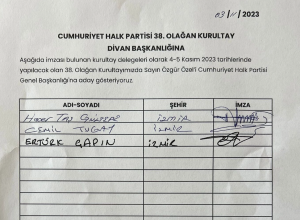 03/11/2023
CUMHURİYET HALK PARTİSİ 38. OLAĞAN KURULTAY
DİVAN BAŞKANLIĞINA
Aşağıda imzası bulunan kurultay delegeleri olarak 4-5 Kasım 2023 tarihlerinde
yapılacak olan 38. Olağan Kurultayımızda Sayın Özgür Özel'i Cumhuriyet Halk Partisi
Genel Başkanlığı'na aday gösteriyoruz.
ADI-SOYADI ŞEHİR İMZA
İZMİR
CEMİL TUGAY İZMİR
ERTÜRK ÇAPIN İZMİR